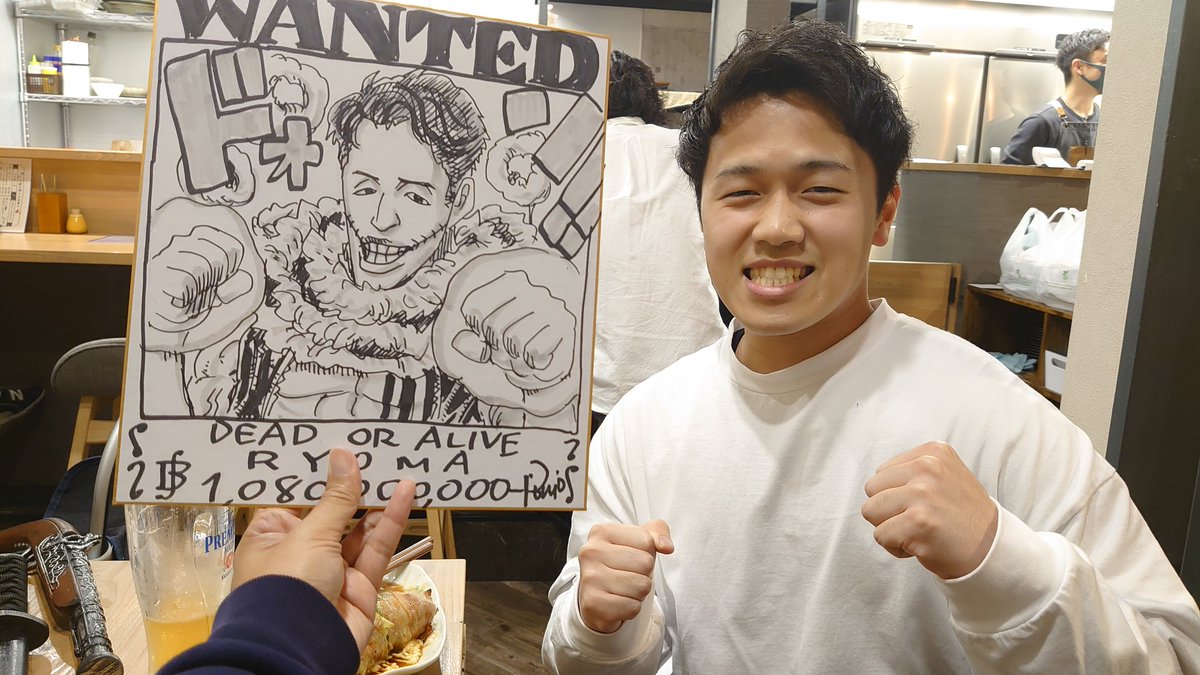 WANTED
ドォ
ン
DEAD OR ALIVE
RYOMA
฿ 1,080,000,000-
PREM